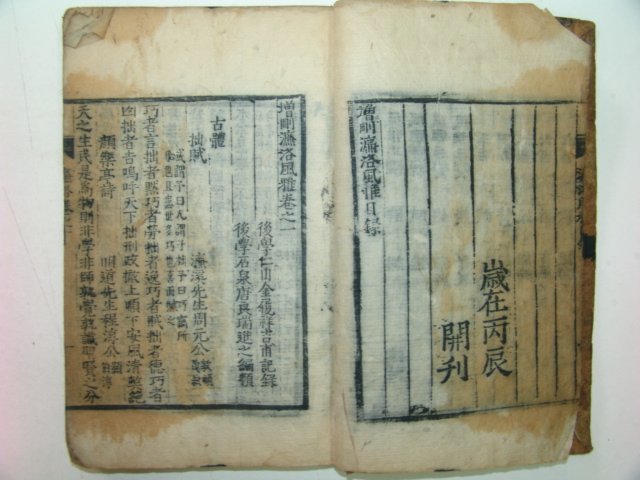 增刪濂洛風雅目錄
歲在丙辰
開刊
增刪濂洛風雅卷之一
後學仁山金履祥吉甫記錄
後學石泉唐良瑞進之編類
古體
拙賦
濂溪先生周元公
或謂予曰人謂子拙予曰巧竊所
恥也且患世多巧也喜而賦之
巧者言拙者默巧者勞拙者逸巧者賊拙者德巧者
凶拙者吉嗚呼天下拙刑政徹上順下安風清弊絕
顏樂亭詩
明道先生程淳公
天之生民是為物則非學非師孰覺孰識聖賢之分